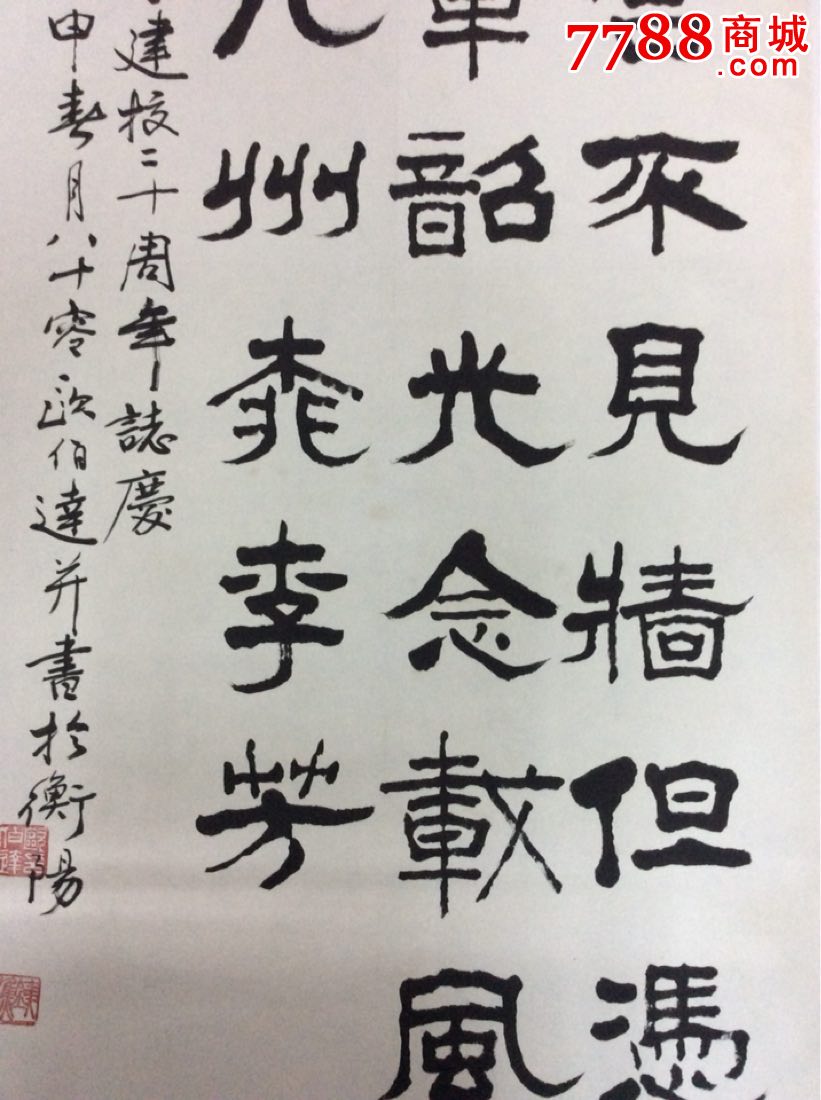 7788商城
.com
不見牆但馮
韶光念載風
九州桃李芳
建校二十周年誌慶
申春月八十零歐伯達并書於衡陽